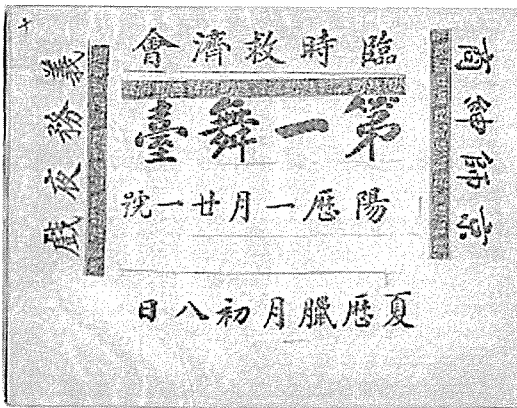 京師紳商
臨時救濟會
第一舞臺
陽厯一月廿一號
夏厯臘月初八日
義務夜戲